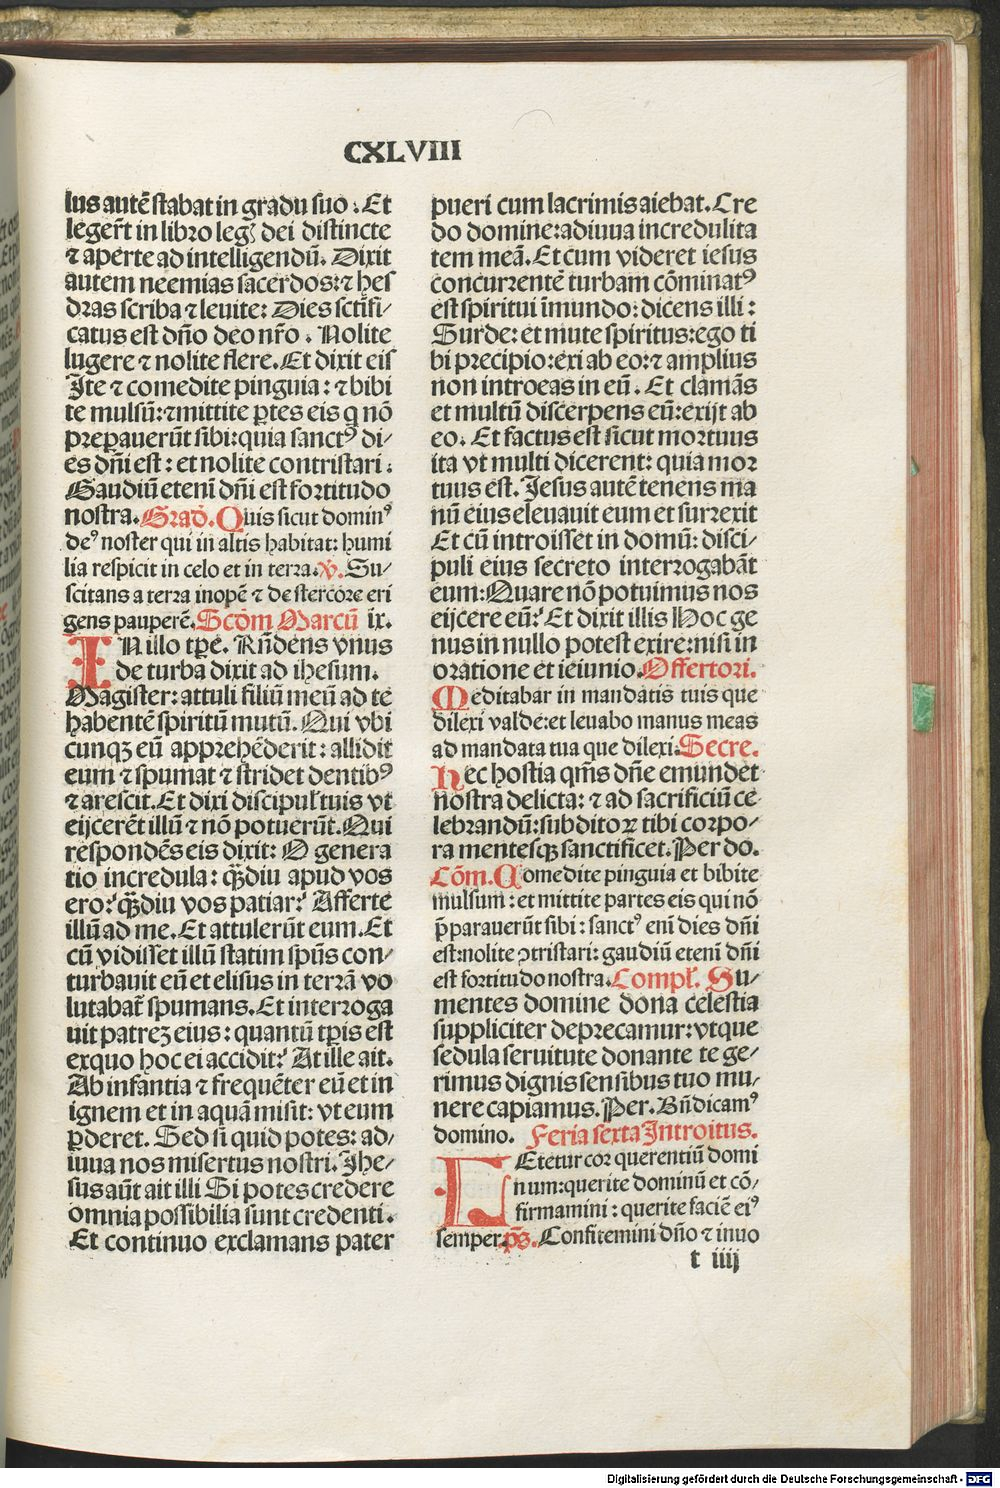 CXLVIII
lus autē stabat in gradu suo. Et
legerūt in libro legꝭ dei distincte
⁊ aperte ad intelligendū. Dixit
autem neemias sacerdos: ⁊ hes
dras scriba ⁊ leuite: Dies sctīfi/
catus est dn̄o deo nr̄o. Nolite
lugere ⁊ nolite flere. Et dixit eis
Ite ⁊ comedite pinguia: ⁊ bibi
te mulsū: ⁊mittite ꝑtes eis q nō
prepauerūt sibi: quia sanctꝰ di/
es dn̄i est: et nolite contristari:
Gaudiū etenī dn̄i est fortitudo
nostra. Grad̄. Quis sicut dominꝰ
deꝰ noster qui in altis habitat: humi
lia respicit in celo et in terra. v̄. Su/
scitans a terra inopē ⁊ de stercore eri
gens pauperē. Scd̄m Marcū ix.
IN illo tp̄e. Rn̄dens vnus
de turba dixit ad ihesum.
Magister: attuli filiū meū ad te
habentē spiritū mutū. Qui vbi
cunqꝫ eū apprehēderit: allidit
eum ⁊ spumat ⁊ stridet dentibꝰ
⁊ arescit. Et dixi discipuł tuis vt
eijcerēt illū ⁊ nō potuerūt. Qui
respondēs eis dixit: O genera
tio incredula: qͣ̄diu apud vos
ero? qͣ̄diu vos patiar? Afferte
illū ad me. Et attulerūt eum. Et
cū vidisset illū statim spūs con/
turbauit eū et elisus in terrā vo
lutabat̄ spumans. Et interroga
uit patreꝫ eius: quantū tp̄is est
exquo hoc ei accidit? At ille ait.
Ab infantia ⁊ frequēter eū et in
ignem et in aquā misit: vt eum
ꝑderet. Sed si quid potes: ad/
iuua nos misertus nostri. Ihe/
sus aūt ait illi Si potes credere
omnia possibilia sunt credenti.
Et continuo exclamans pater
pueri cum lacrimis aiebat. Cre
do domine: adiuua incredulita
tem meā. Et cum videret iesus
concurrentē turbam cōminatꝰ
est spiritui īmundo: dicens illi:
Surde: et mute spiritus: ego ti
bi precipio: exi ab eo: ⁊ amplius
non introeas in eū. Et clamās
et multū discerpens eū: exijt ab
eo. Et factus est sicut mortuus
ita vt multi dicerent: quia mor
tuus est. Iesus autē tenens ma
nū eius eleuauit eum et surrexit
Et cū introisset in domū: disci/
puli eius secreto interrogabāt
eum: Quare nō potuimus nos
eijcere eū? Et dixit illis Hoc ge
nus in nullo potest exire: nisi in
oratione et ieiunio. Offertori.
Meditabar in mandatis tuis que
dilexi valde: et leuabo manus meas
ad mandata tua que dilexi. Secre.
Hec hostia qm̄s dn̄e emundet
nostra delicta: ⁊ ad sacrificiū ce
lebrandū: subditoꝝ tibi corpo/
ra mentesqꝫ sanctificet. Per do.
Cōm. Comedite pinguia et bibite
mulsum: et mittite partes eis qui nō
p̄parauerūt sibi: sanctꝰ enī dies dn̄i
est: nolite ꝯtristari: gaudiū etenī dn̄i
est fortitudo nostra. Compł. Su/
mentes domine dona celestia
suppliciter deprecamur: vt que
sedula seruitute donante te ge/
rimus dignis sensibus tuo mu/
nere capiamus. Per. Bn̄dicamꝰ
domino. Feria sexta Introitus.
LEtetur cor querentiū domi
num: querite dominū et cō/
firmamini: querite faciē eiꝰ
semper. p̄s. Confitemini dn̄o ⁊ inuo
t iiij
Digitalisierung gefördert durch die Deutsche Forschungsgemeinschaft - DFG